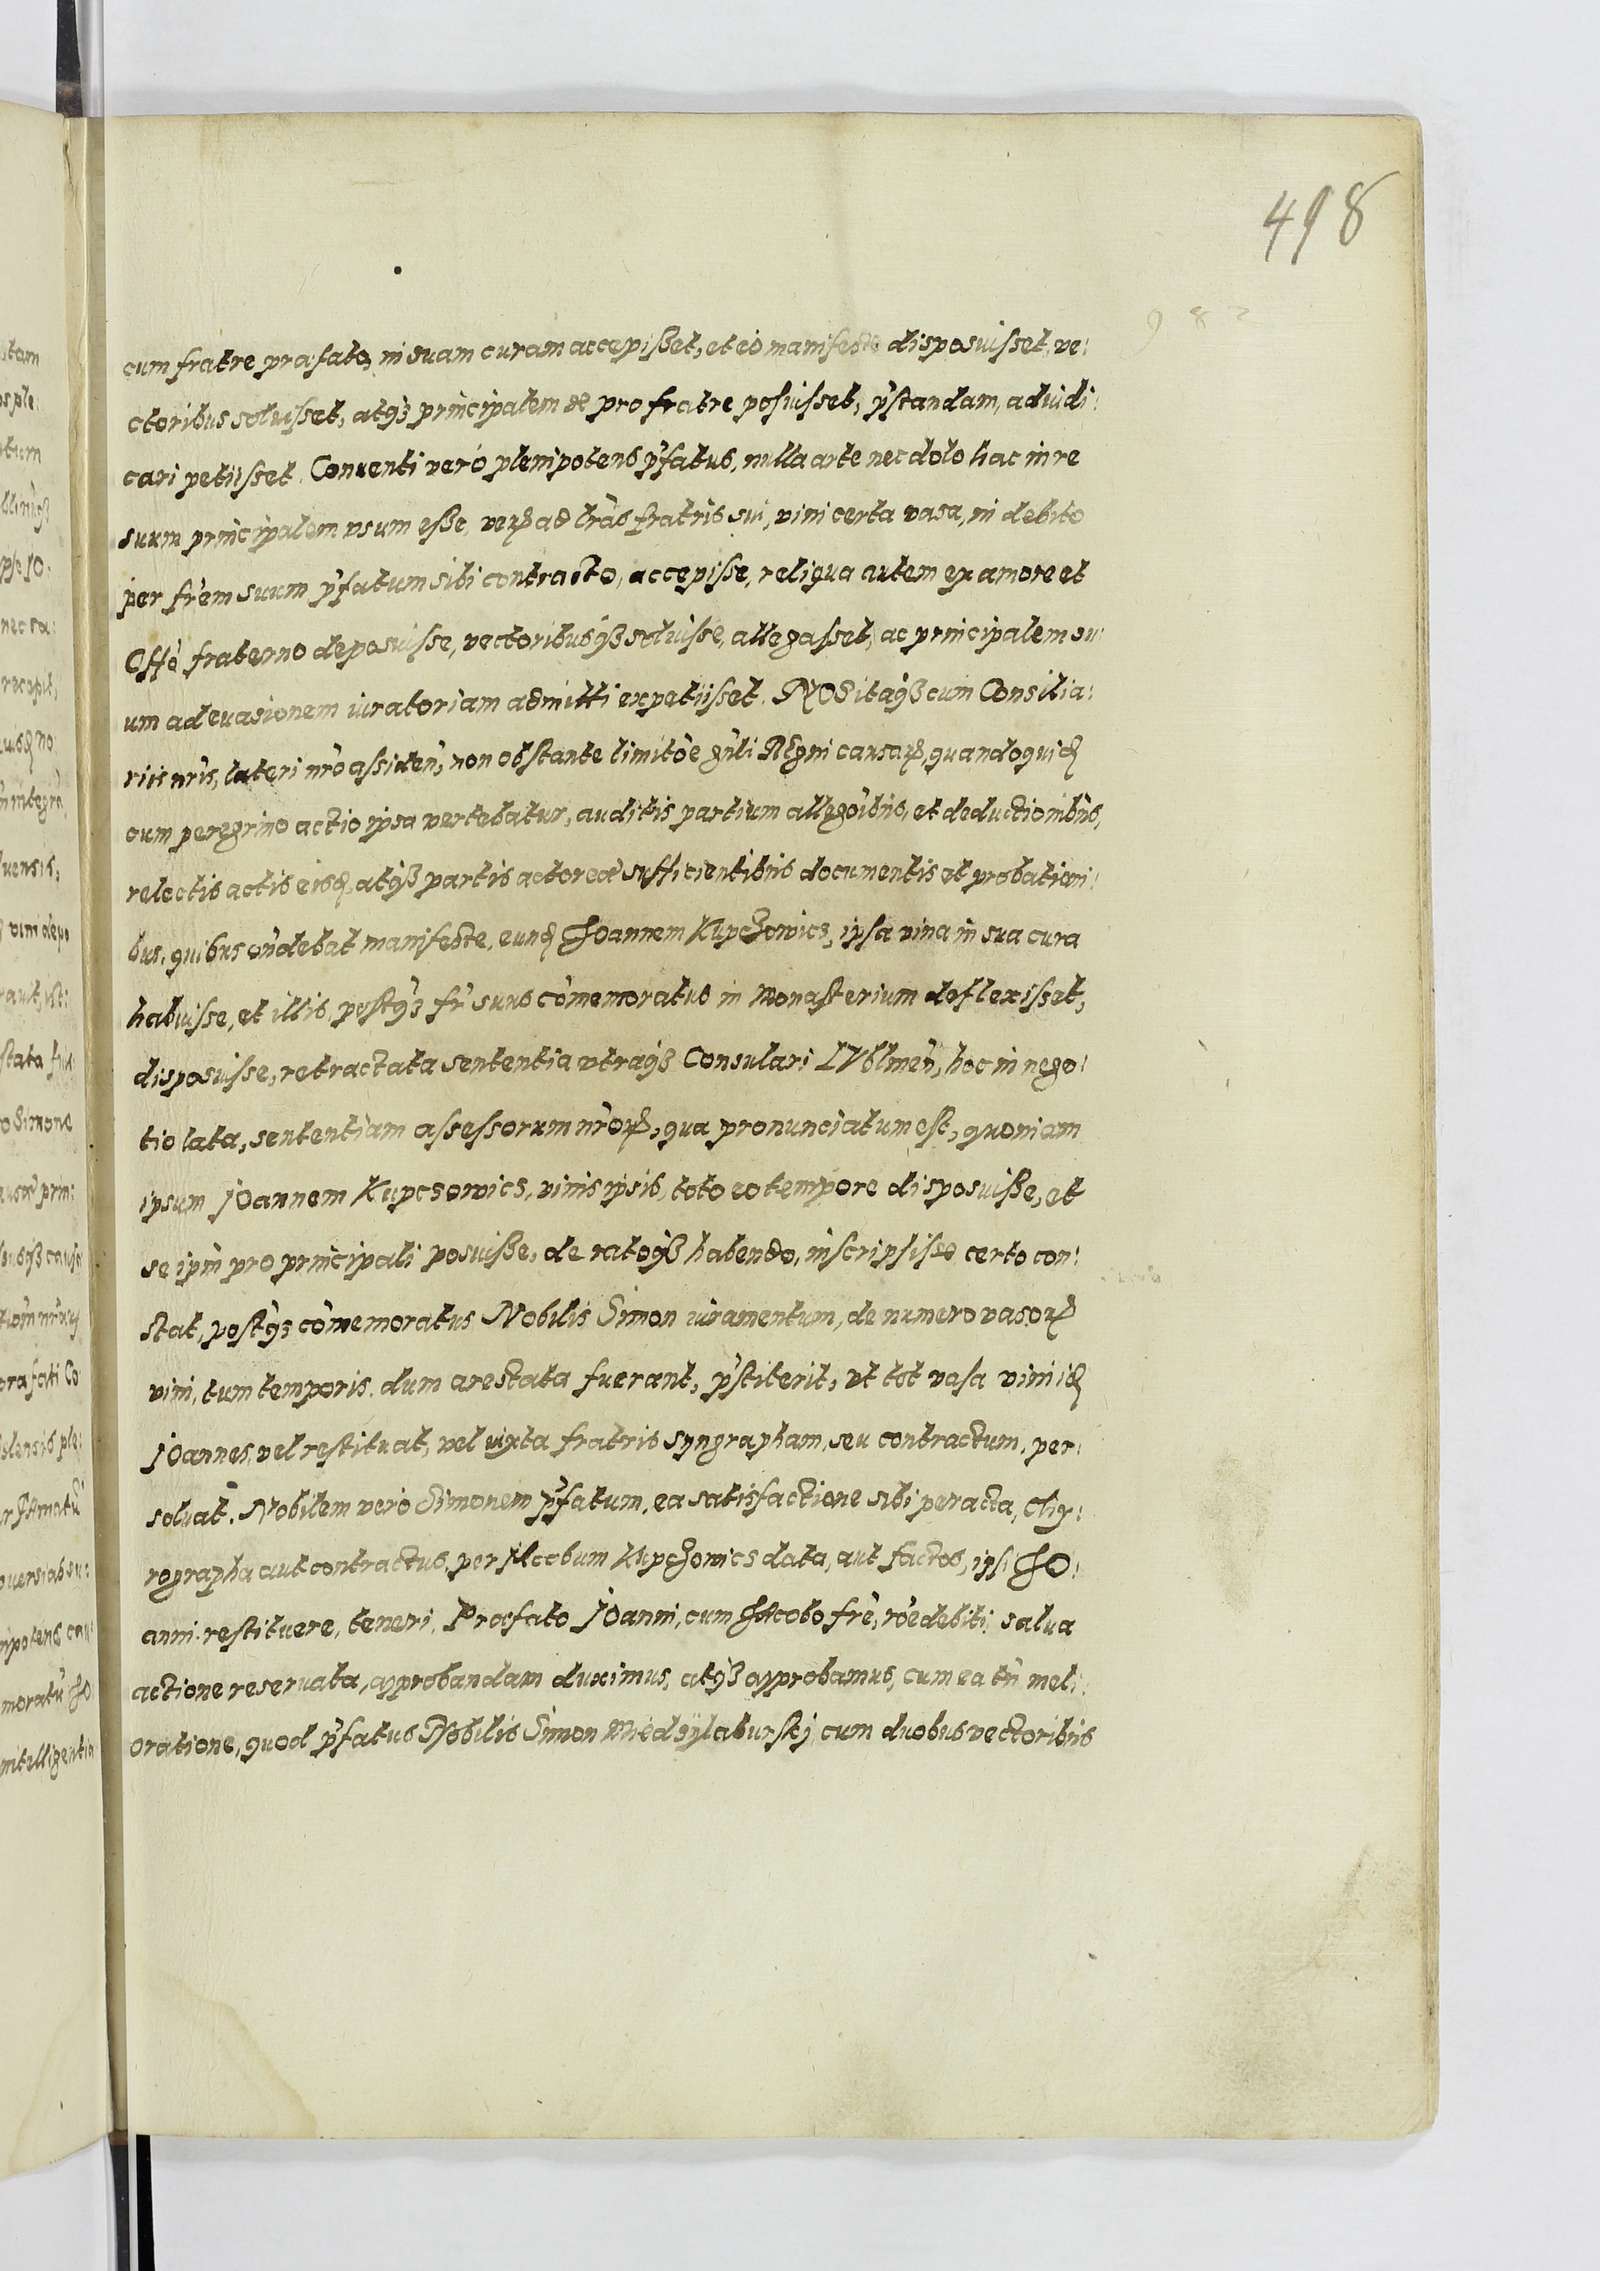 498
982
cum fratre præfato, in suam curam accepißet, et eo manifeste disposuisset, ve:
ctoribus soluisset, atqз principalem se pro fratre posuisset, p̃standam, adiudi:
cari petiisset. Conuenti verò plenipotens p̃fatus, nulla arte nec dolo hac in re
suum principalem vsum eße, veꝝ ad l̃ras fratris sui, vini certa vasa, in debito
per fr̃em suum p̃fatum sibi contracto, accepisse, reliqua autem ex amore et
Offõ fraterno deposuisse, vectoribusqз soluisse, allegasset, ac principalem su:
um ad euasionem iuratoriam admitti expetiisset. NOS itaqз cum Consilia:
riis nr̃is, lateri nr̃o assideñ, non obstante limitõe gñli Regni causaꝝ, quandoquid
cum peregrino actio ipsa vertebatur, auditis partium allegõibus, et deductionibus,
relectis actis eisd, atqз partis actoreæ sufficientibus documentis et probationi:
bus, quibus oñdebat manifeste, eund IOannem Kupczowicz, ipsa vina in sua cura
habuisse, et illis, postqз fr̃ suus cõmemoratus in Monasterium deflexisset,
disposuisse, retractata sententia vtraqз Consulari LVblineñ, hoc in nego:
tio lata, sententiam assessorum nr̃oꝝ, qua pronunciatum est, quoniam
ipsum IOannem Kupcsowics, vinis ipsis, toto eo tempore disposuiße, et
se ipm̃ pro principali posuiße, de ratoqз habendo, inscripsisse certo con:
stat, postqз cõmemoratus Nobilis Simon iuramentum, de numero vasoꝝ
vini, tum temporis, dum arestata fuerant, p̃stiterit, vt tot vasa vini id
IOannes, vel restituat, vel iuxta fratris syngrapham, seu contractum, per:
soluat. Nobilem verò Simonem p̃fatum, ea satisfactione sibi peracta, Chy:
rographa aut contractus, per IAcobum Kupczowics data, aut factos, ipsi IO:
anni restituere, teneri. Præfato IOanni, cum IAcobo fr̃e, rõe debiti, salua
actione reseruata, approbandam duximus, atqз approbamus, cum ea tñ meli:
oratione, quod p̃fatus Nobilis Simon Miedzylaburskj cum duobus vectoribus